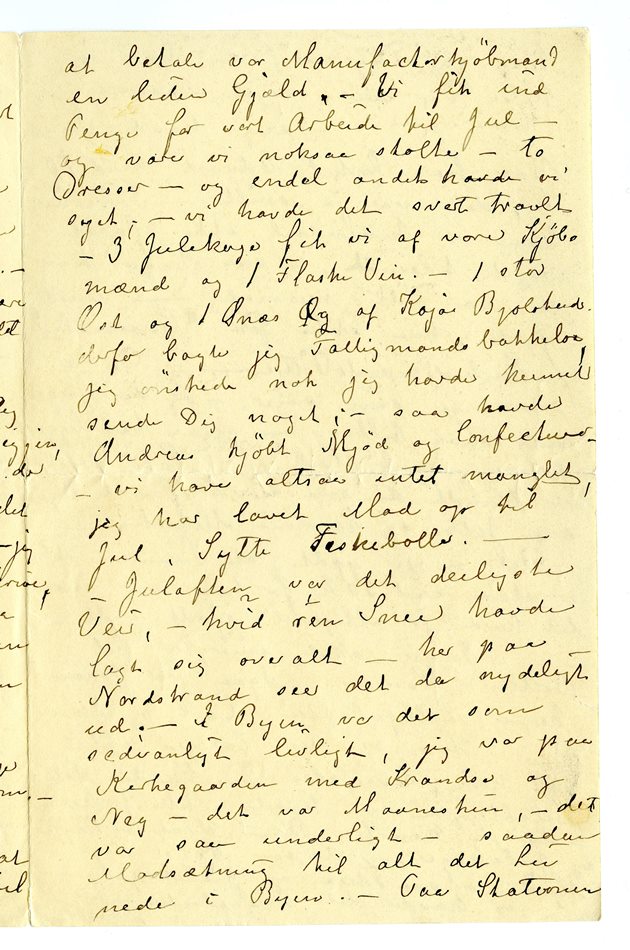 at betale vor Manufacturkjøbmand
en liden Gjæld. – Vi fik ind
Penge for vort Arbeide til Jul –
og vare vi noksaa stolte – to
Dresser – og endel andet havde vi
syet; – vi havde det svært travlt
– 3 Julekage fik vi af vore Kjøb-
mænd og 1 Flaske Vin. – 1 stor
Ost og 1 af Kajas
derfor bagte jeg Fattigmandsbakkelse,
jeg ønskede nok jeg havde kunnet
sende Dig noget; – saa havde
Andreas kjøbt Mjød og Confecturer
– vi have altsaa intet manglet,
jeg har lavet Mad op til
Jul, Sylte Feskebolle. –
– Julaften var det deiligste
Veir, – hvid rén Snee havde
lagt sig overalt – her paa
Nordstrand seer det da nydeligt
ud. – I Byen var det som
sedvanlyt livligt, jeg var paa
Kerkegaarden med Krandse og
Neg – det var Maaneskin, – det
var saa underligt – saadan
Modsætning til alt det Liv
nede i Byen. – Paa Stationen